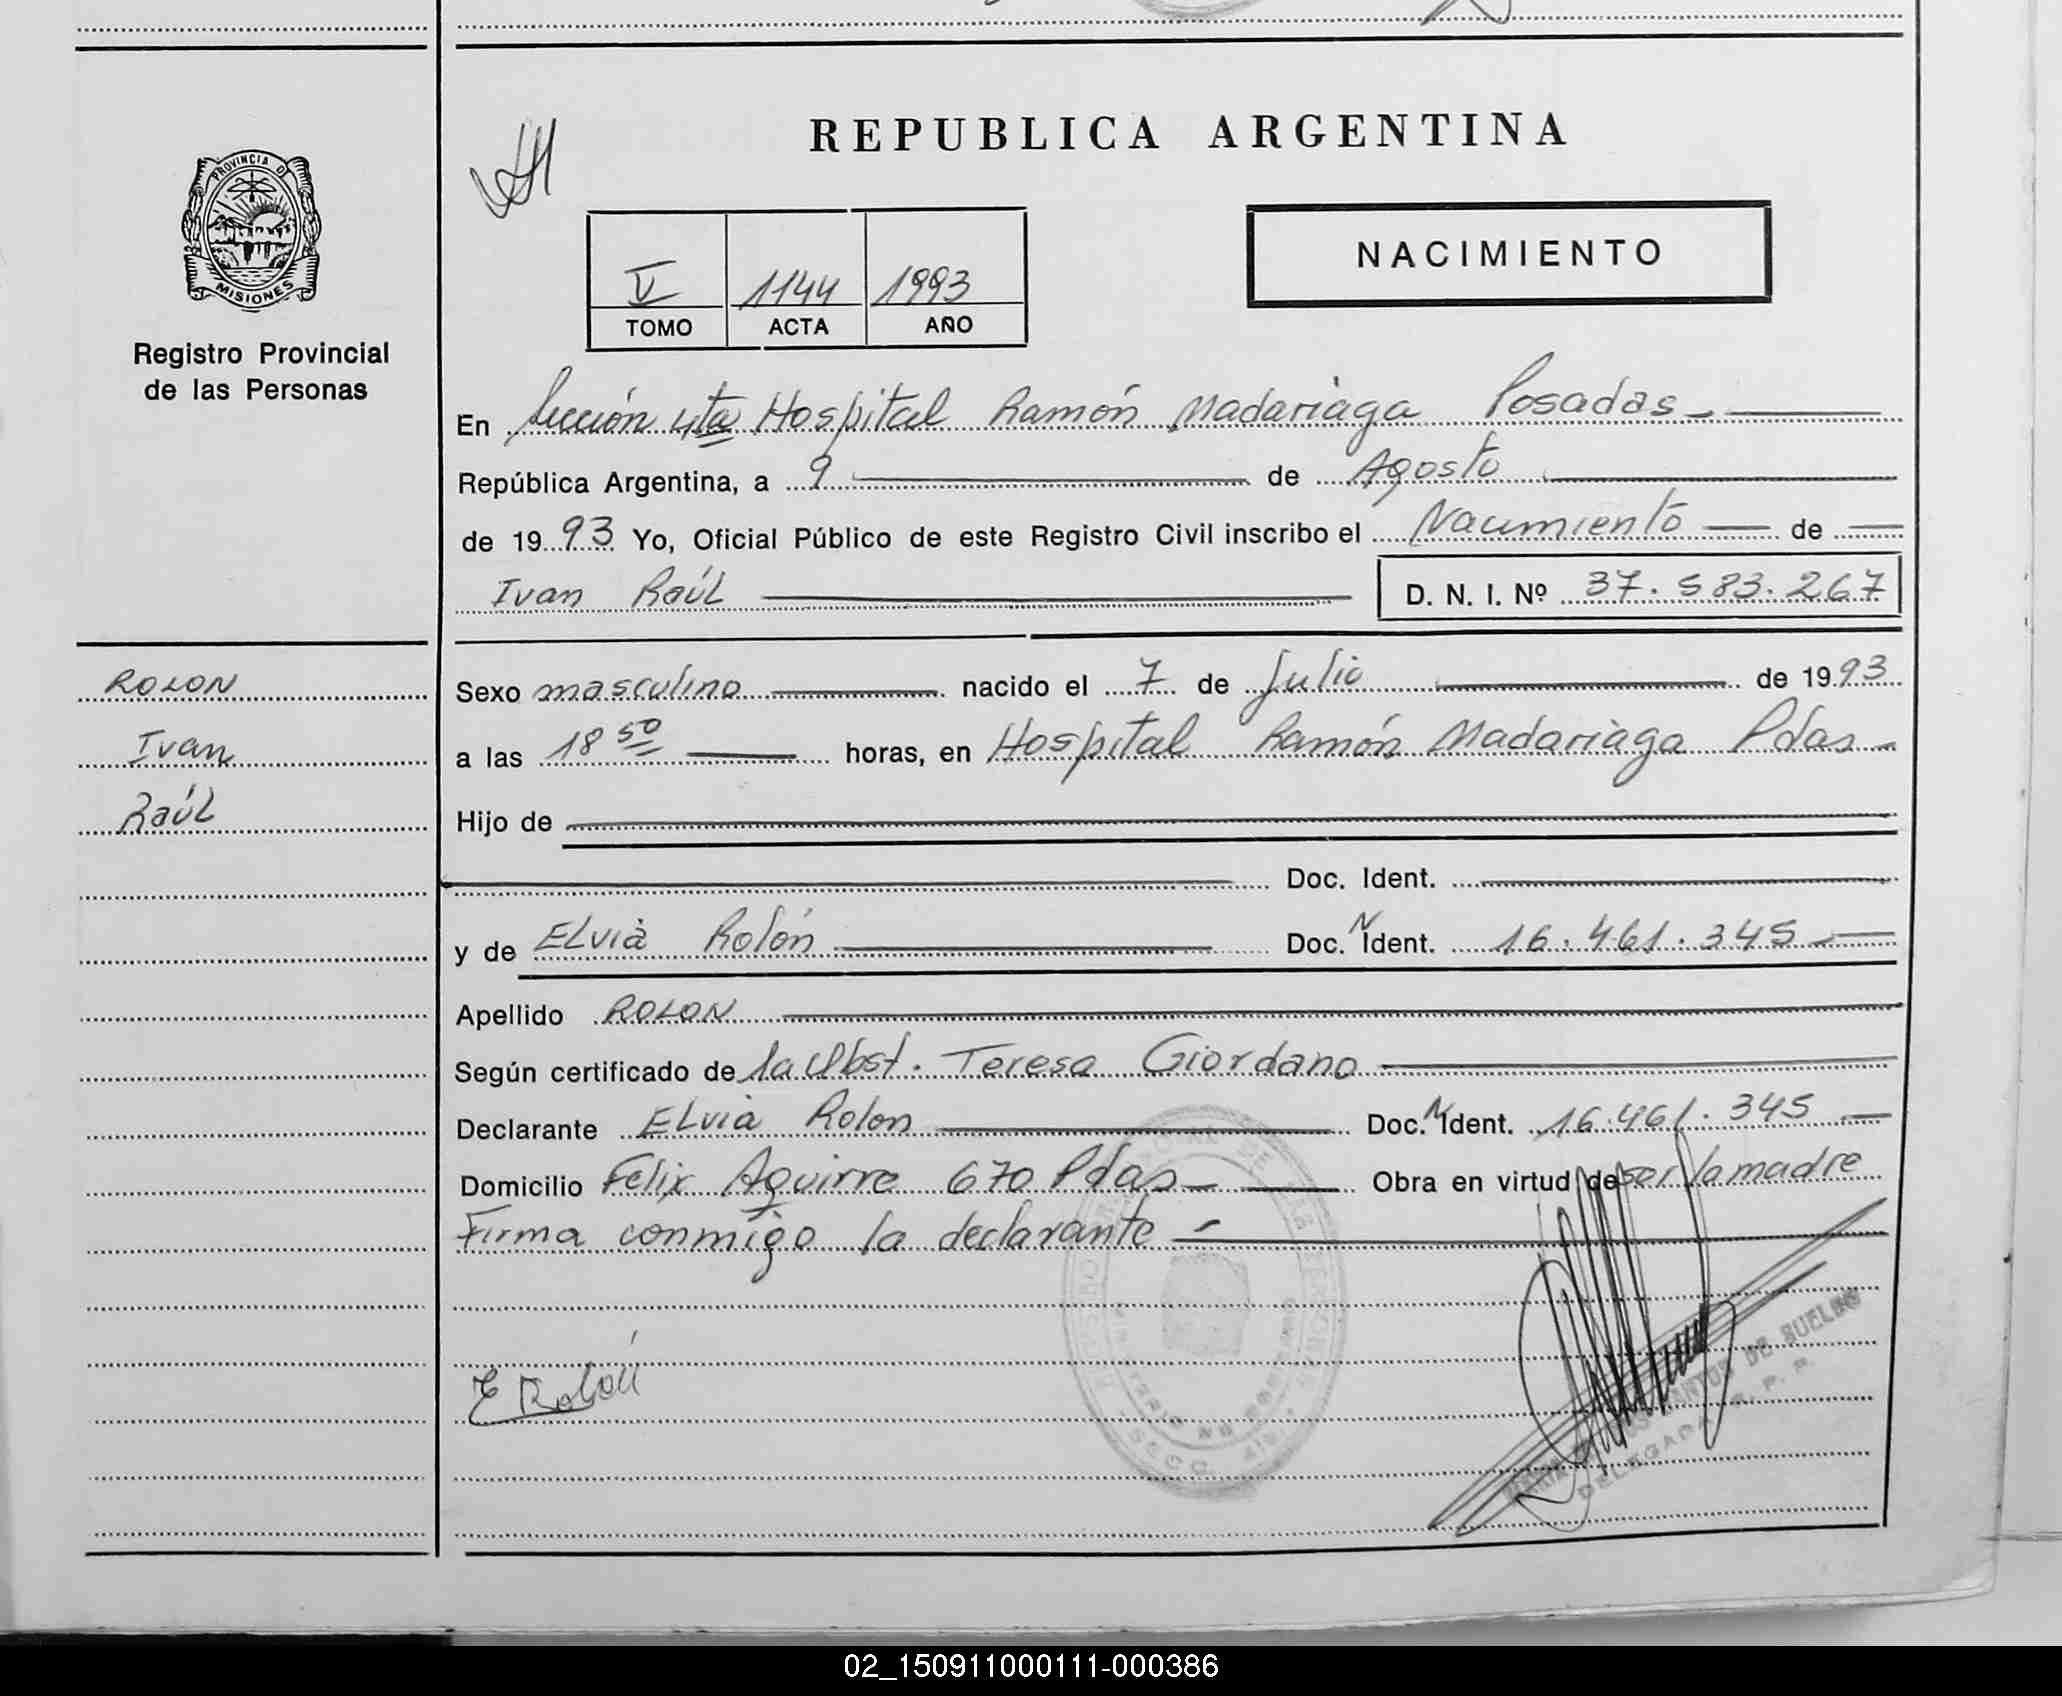 REPUBLICA ARGENTINA
PROVINCIA DE
MISIONES
Registro Provincial
de las Personas
NACIMIENTO
V 1144 1993
TOMO ACTA AÑO
En Sección 4ta Hospital Ramón Madariaga Posadas
República Argentina, a 9 de Agosto
de 1993 Yo, Oficial Público de este Registro Civil inscribo el Nacimiento de
Ivan Raúl D. N. I. Nº 37.583.267
ROLON
Ivan
Raúl
Sexo masculino nacido el 7 de Julio de 1993
a las 18 50 horas, en Hospital Ramón Madariaga Pdas
Hijo de
Doc. Ident.
y de Elvia Rolón Doc. N Ident. 16.461.345
Apellido ROLON
Según certificado de la Obst. Teresa Giordano
Declarante Elvia Rolon Doc. N Ident. 16.461.345
Domicilio Felix Aguirre 670 Pdas Obra en virtud de ser la madre
Firma conmigo la declarante
E Rolón
DE SUELDO
DELEGADA R. P. P.
02_150911000111-000386